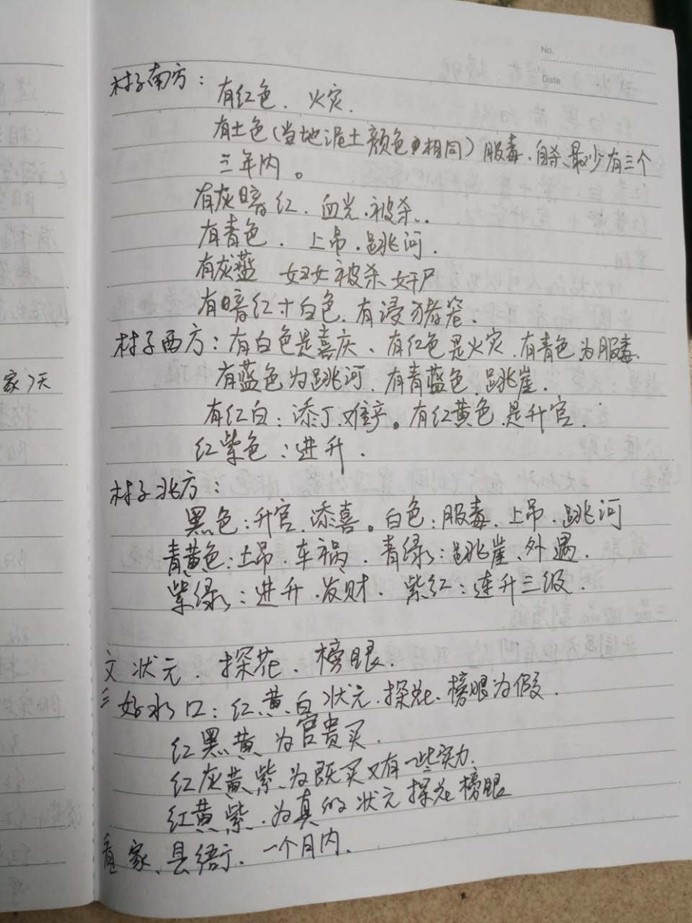 No.
Date
村子南方：有红色．火灾．
有土色（当地泥土颜色相同）服毒．自杀．最少有三个
三年内。
有灰暗红．血光．被杀..
有青色．上吊．跳河．
有灰蓝 妇女被杀 奸尸
有暗红十白色．有浸猪笼．
村子西方：有白色是喜庆、有红色是火灾．有青色为服毒．
有蓝色为跳河．有青蓝色．跳崖．
有红白：添丁．难产。有红黄色．是升官．
红紫色：进升．
家7天
村子北方：
黑色：升官．添喜。白色：服毒．上吊．跳河
青黄色：土吊．车祸．青绿：跳崖、外遇．
紫绿：进升．发财．紫红：连升三级．
文状元．探花．榜眼．
三．如水口：红．黄．白 状元．探花．榜眼为假．
红黑黄．为官贵买．
红灰黄紫．为既买又有一些实力．
红黄紫．为真的状元 探花 榜眼
家．县 一个月内．